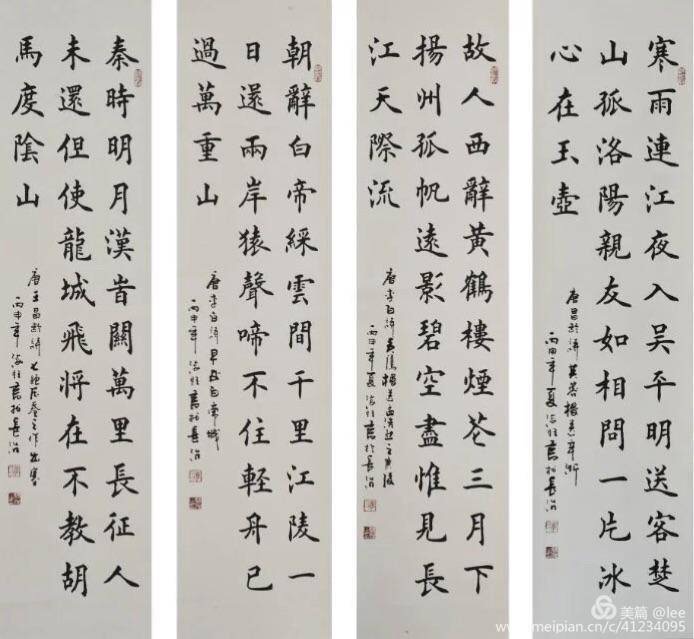 寒雨連江夜入吳平明送客楚
山孤洛陽親友如相問一片冰
心在玉壺
唐昌齡詩芙蓉樓送辛漸
丙申年夏書於長治
故人西辭黃鶴樓煙花三月下
揚州孤帆遠影碧空盡惟見長
江天際流
唐李白詩黃鶴樓送孟浩然之廣陵
丙申年夏書於長治
朝辭白帝綵雲間千里江陵一
日還兩岸猿聲啼不住輕舟已
過萬重山
唐李白詩早发白帝城
丙申年書於長治
秦時明月漢旹關萬里長征人
未還但使龍城飛將在不教胡
馬度陰山
唐王昌齡詩七絕之作出塞
丙申年書於長治
美篇 @lee
www.meipian.cn/c/41234095